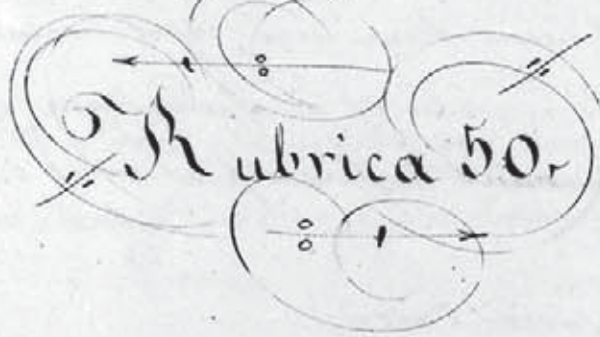 Rubrica 50.